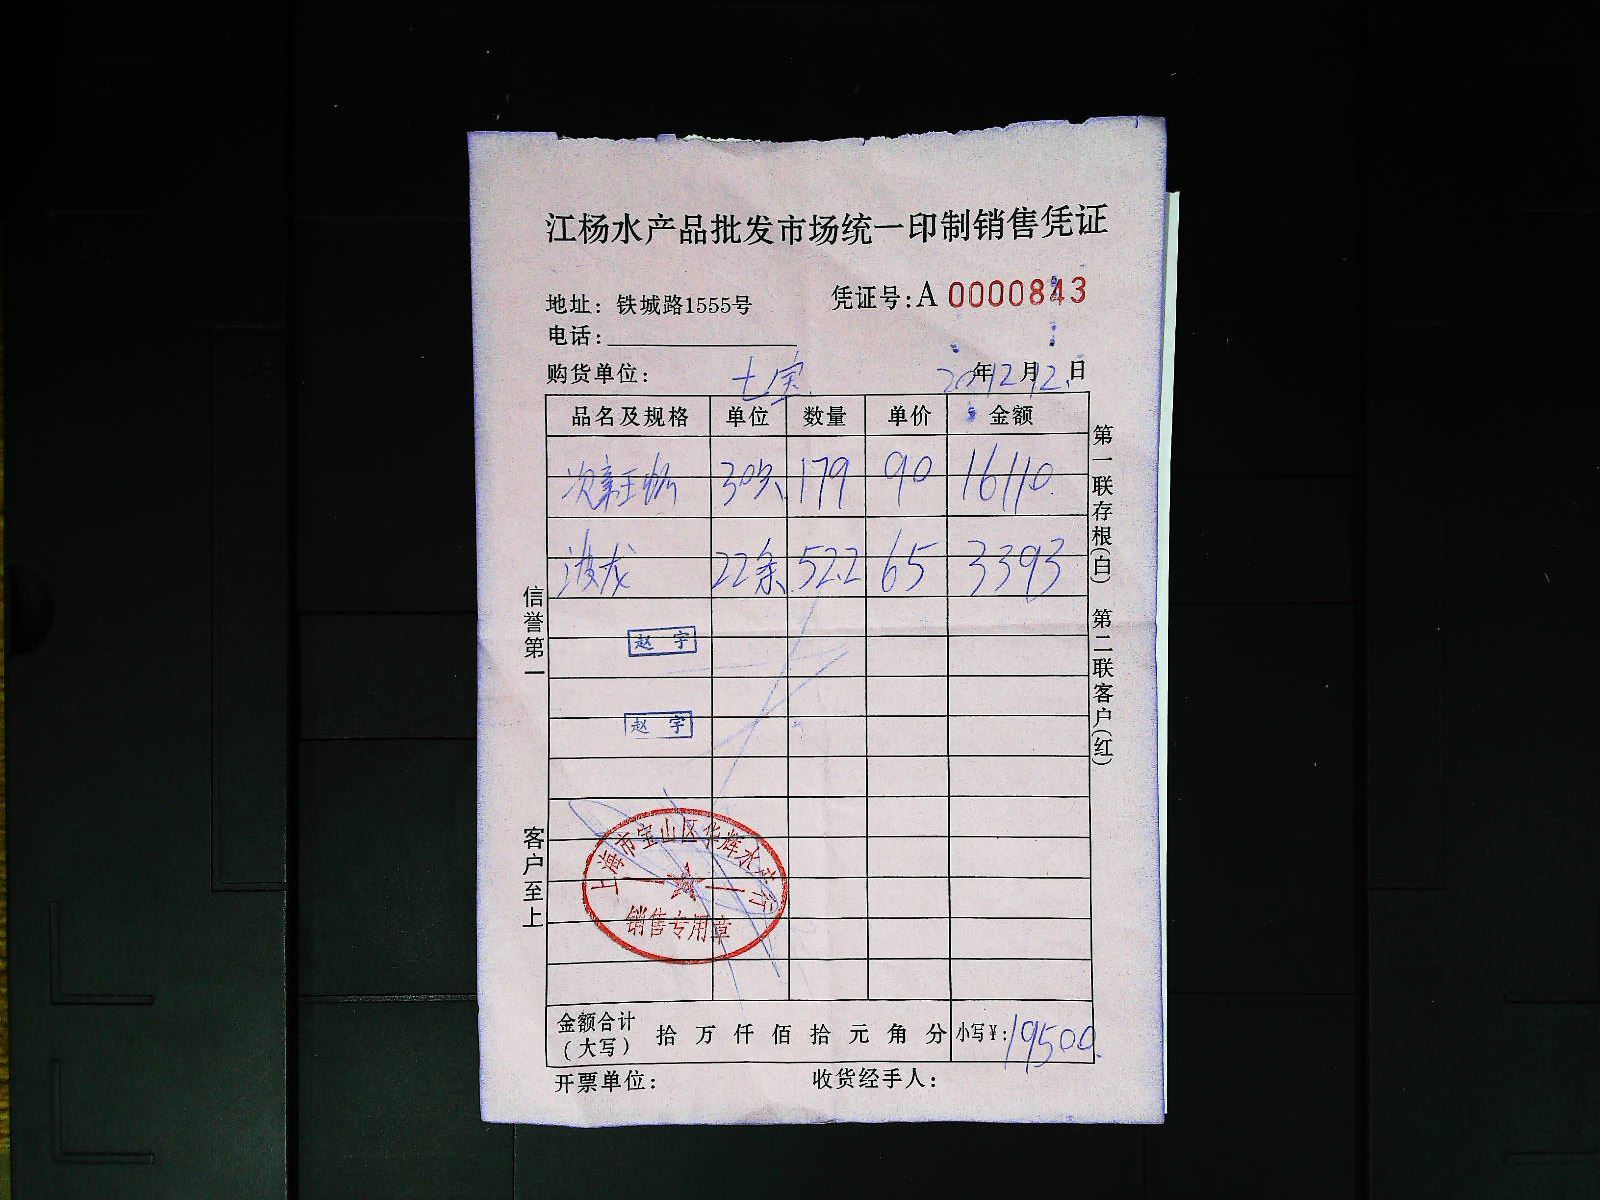 江杨水产品批发市场统一印制销售凭证
地址：铁城路1555号
凭证号：A 0000843
电话：
购货单位：七宝
年12月12日
品名及规格 单位 数量 单价 金额
30只 179 90 16110
波龙 22条 52.2 65 3393
赵宇
赵宇
信誉第一
客户至上
第一联存根(白) 第二联客户(红)
上海市宝山区华辉水产行
销售专用章
金额合计(大写) 拾万仟佰拾元角分 小写¥：19500
开票单位：
收货经手人：